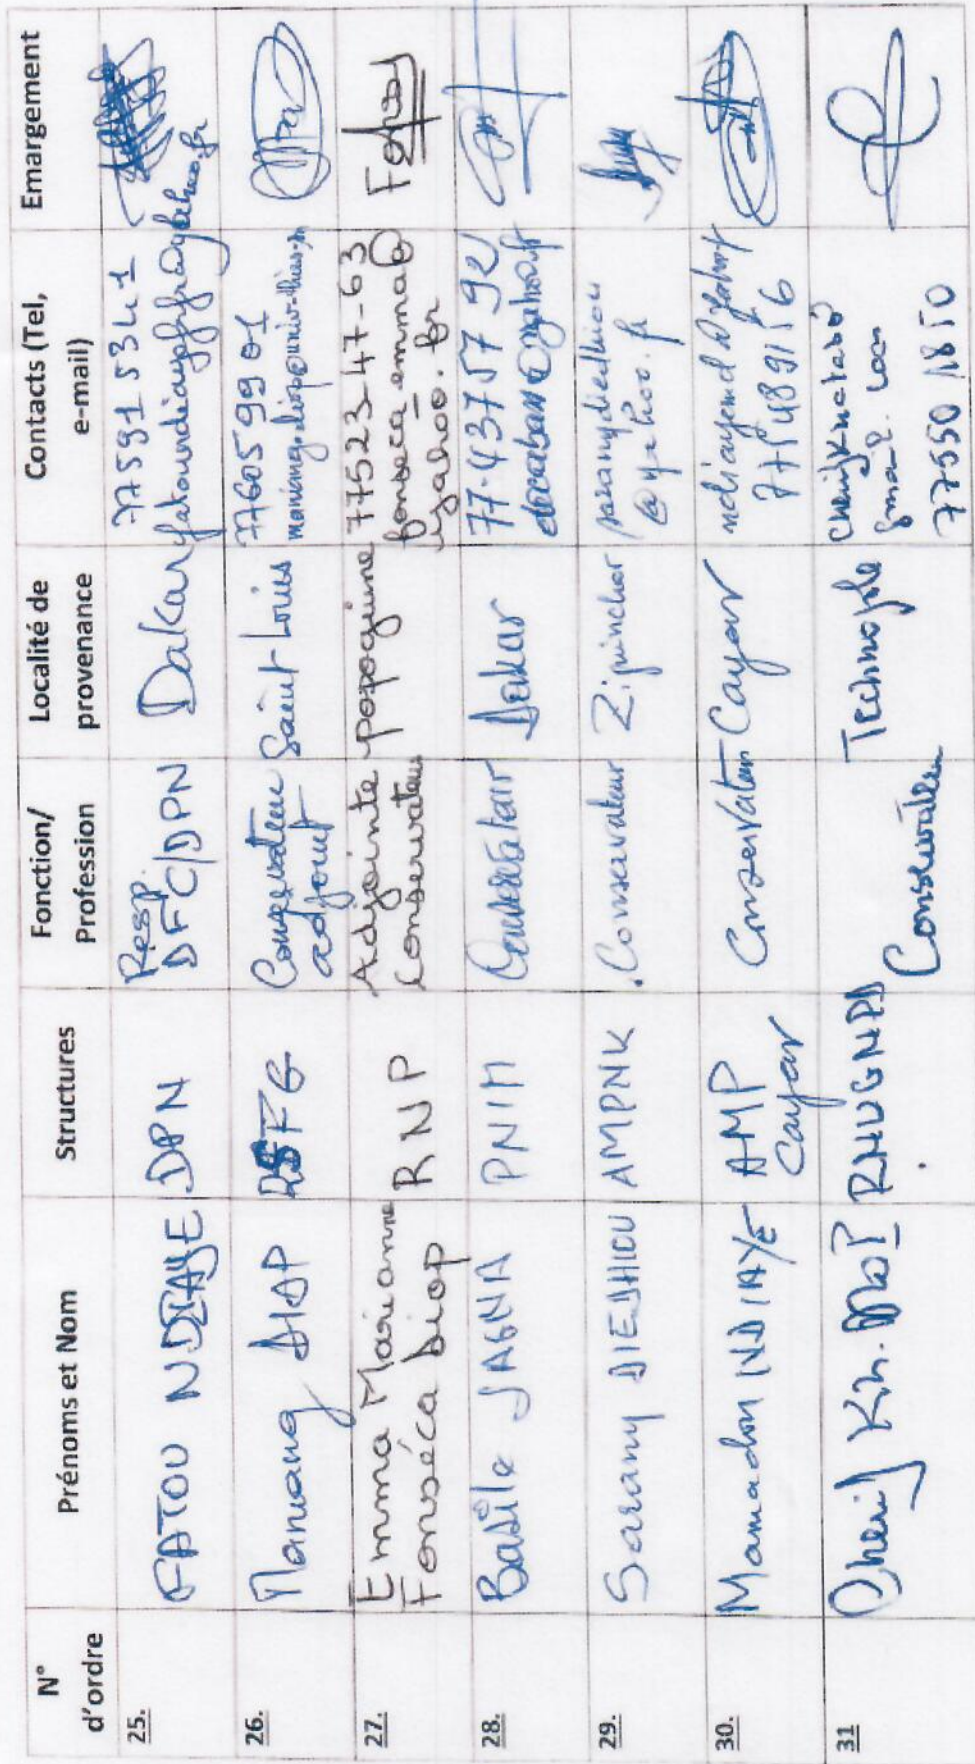 N° d'ordre | Prénoms et Nom | Structures | Fonction/ Profession | Localité de provenance | Contacts (Tel, e-mail) | Emargement
25. | FATOU NDIAYE | DPN | Resp. DFC/DPN | Dakar | 77 591 53 41
26. | Maniang DIOP | Conservateur adjoint | Saint Louis | 77605 99 01
27. | Emma Marianne Fonséca Diop | RNP | Adjointe Conservateur | popoguine | 77523-47-63 fonseca_emma@yahoo.fr
28. | Basile JAGNA | PNIM | Conservateur | Dakar | 77-437 57 92
29. | Sarany DIEDHIOU | AMPNK | Conservateur | Ziguinchor | saranydiedhiou @yahoo.fr
30. | Mamadou NDIAYE | AMP Cayar | Conservateur | Cayar
31 | RHUGNPD | Conservateur | Technopole | 77550 18 10